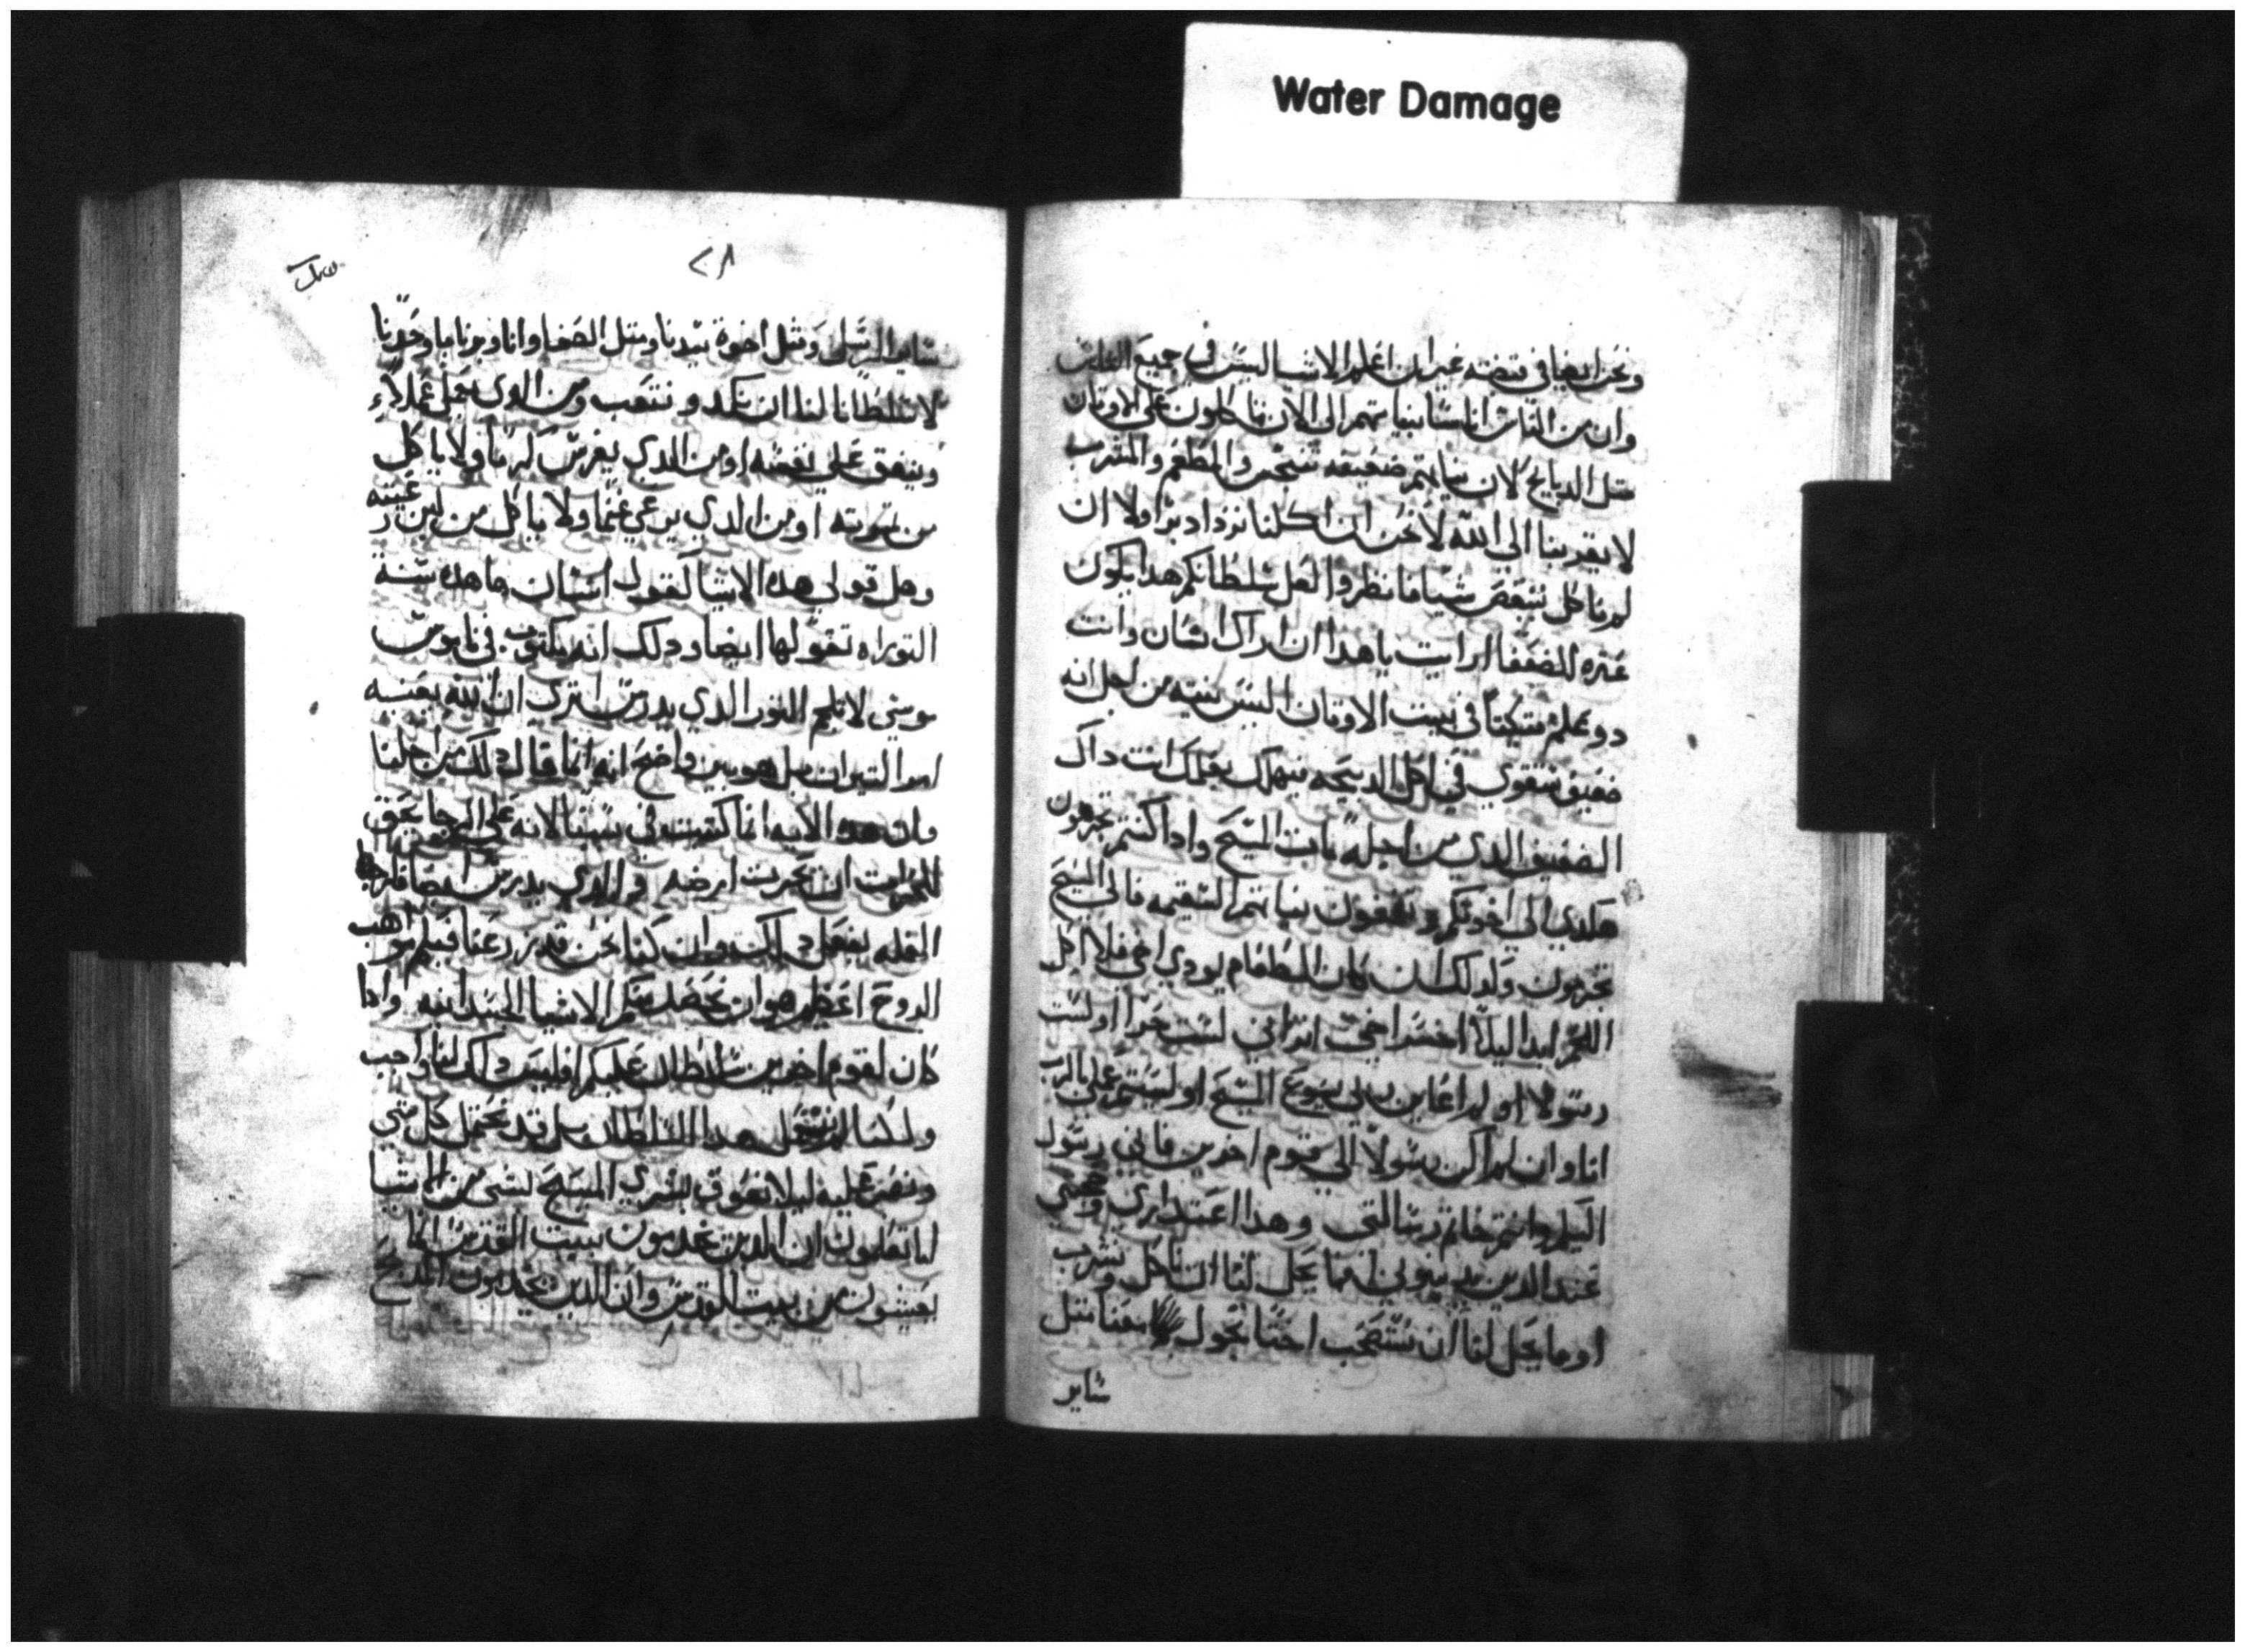 Water Damage
ونحن ايضا في قبضته غير ان اعلم الاشيا ليس في جميع الناس
وان من الناس اناسا بنياتهم الى الان ياكلون على الاوتان
مثل الدبايح لان نياتهم ضعيفه تتنجس والمطعم والمشرب
لا يقربنا الى الله لا نحن ان اكلنا نزداد برا ولا ان
لم ناكل ننقص شيا فانظروا لعل سلطانكم هدا يكون
عتره للضعفا ارايت يا هدا ان راك انسان وانت
دو علم متكيا في بيت الاوتان اليس نيته من اجل انه
ضعيف تتقوى في اكل الدبيحه فيهلك بعلمك انت داك
الضعيف الدي من اجله مات المسيح وادا كنتم تجرمون
هكدي الى اخوتكم وتضعفون نياتهم السقيمه فالى المسيح
تجرمون ولدلك ان كان الطعام يودي اخي فلا اكل
اللحم ابدا ليلا اخسر اخي اتراني لست حرا او لست
رسولا او لم اعاين ربي يسوع المسيح او لستم عملي بالرب
انا وان لم اكن رسولا الى قوم اخرين فاني رسول
اليكم وانتم خاتم رسالتي وهدا اعتداري
عند الدين يدينوني انه ما يحل لنا ان ناكل ونشرب
او ما يحل لنا ان نستصحب اختا تجول معنا مثل
ساير
٢٨
ساير الرسل ومثل اخوة سيدنا ومثل الصفا وانا وبرنابا وحدنا
لا سلطانا لنا ان نكد ونتعب ومن الدي يعمل عملا
وينفق على نفسه او من الدي يغرس كرما ولا ياكل
من تمرته او من الدي يرعي غنما ولا ياكل من لبن رعيته
وهل قولي هده الاشيا كقول انسان ها هده سنة
التوراه تقولها ايضا ودلك انه مكتوب في ناموس
موسي لا تلجم التور الدي يدرس اترى ان الله يعنيه
امر التيران بل هو بين واضح انه انما قال دلك من اجلنا
وان هده الايه انما كتبت في سببنا لانه على الرجا يحق
للحرات ان يحرت ارضه والدي يدرس ايضا فلرجا
الغله يفعل دلك وان كنا نحن قد زرعنا فيكم مواهب
الروح اعظيم هو ان نحصد منكم الاشيا الجسدانيه وادا
كان لقوم اخرين سلطان عليكم افليس دلك لنا واجب
ولكنا لم نستعمل هدا السلطان بل قد نحتمل كل شي
ليلا نعوق بشري المسيح بشى من الاشيا
اما تعلمون ان الدين يخدمون بيت القدس انما
يعيشون من بيت القدس وان الدين يخدمون المدبح